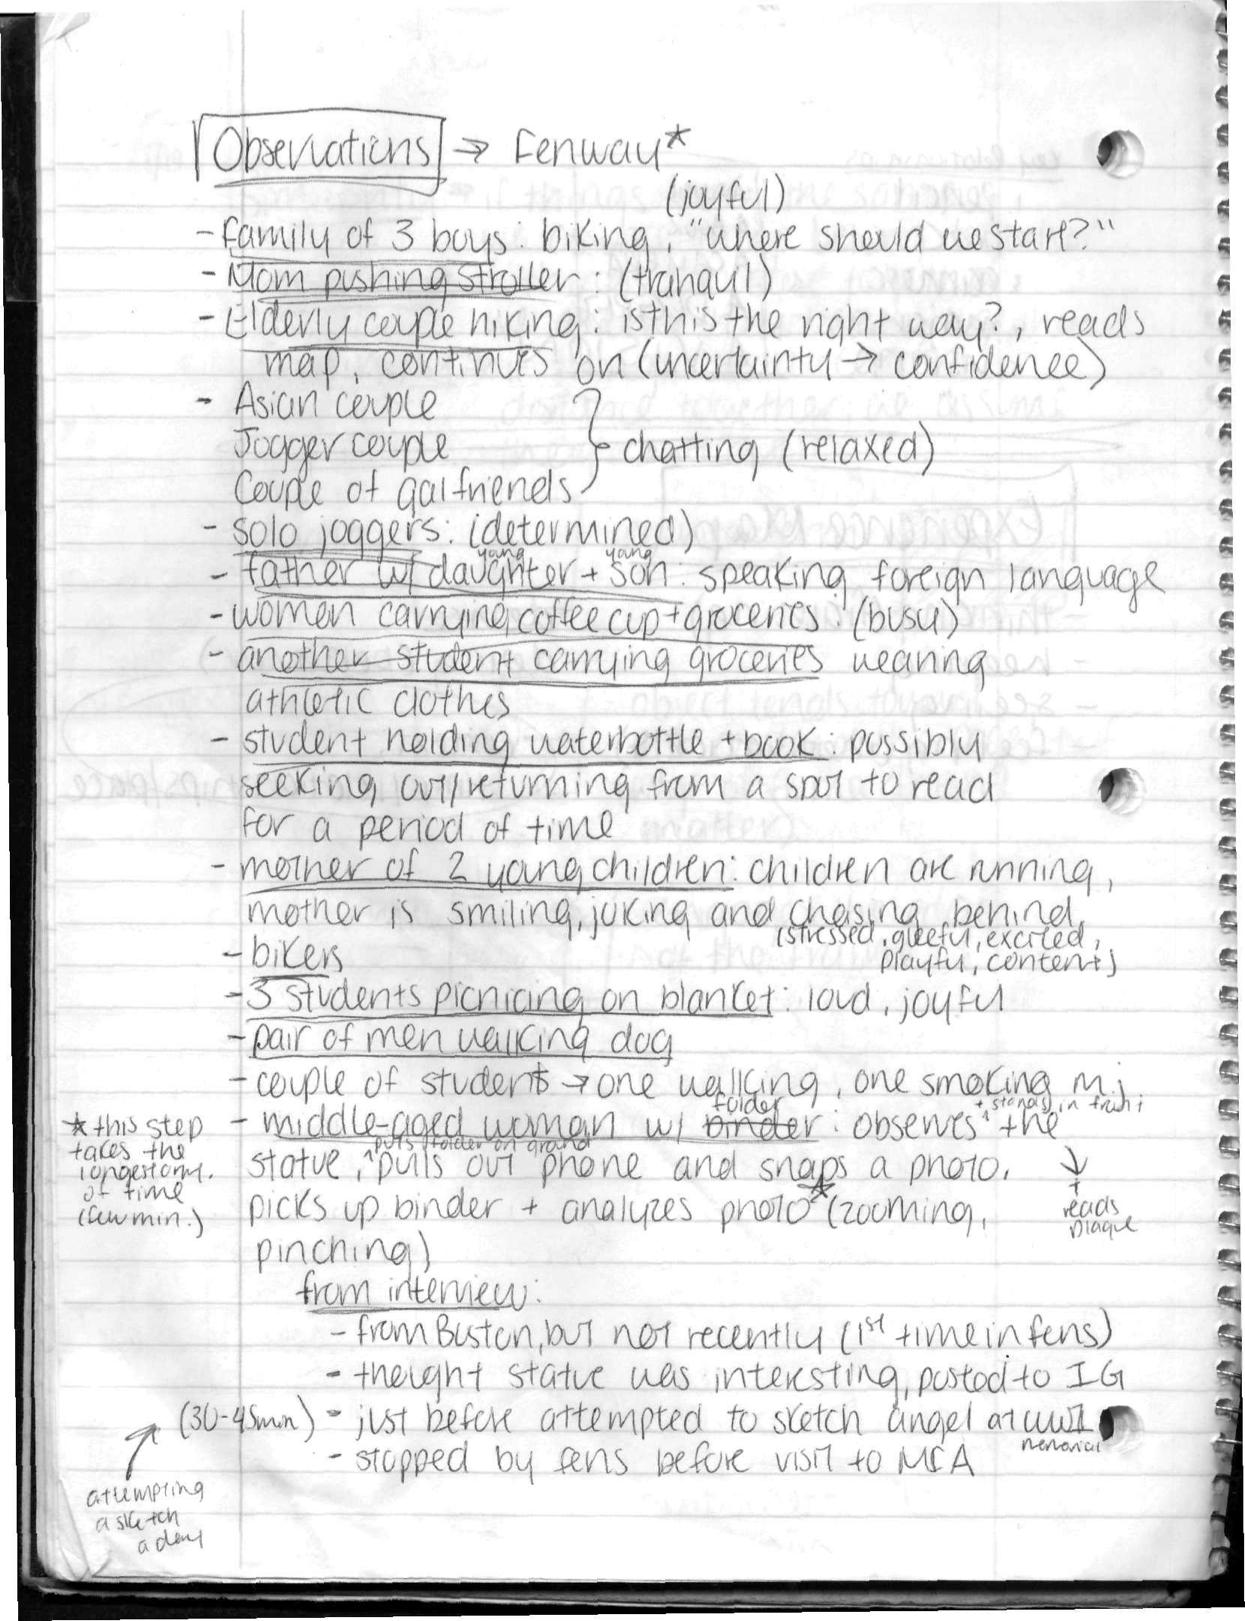 Observations → Fenway*
(joyful)
- family of 3 boys: biking, "where should we start?"
- Mom pushing stroller: (tranquil)
- Elderly couple hiking: is this the right way?, reads
map, continues on (uncertainty → confidence)
- Asian couple
Jogger couple
Couple of galfriends
chatting (relaxed)
- solo joggers: (determined)
young young
- father w/ daughter + son: speaking foreign language
- women carrying coffee cup + groceries: (busy)
- another student carrying groceries wearing
athletic clothes
- student holding waterbottle + book: possibly
seeking out/returning from a spot to read
for a period of time
- mother of 2 young children: children are running,
mother is smiling, joking and chasing behind,
(stressed, gleeful, excited,
playful, content)
- bikers
- 3 students picnicing on blanket: loud, joyful
- pair of men walking dog
- couple of students → one walking, one smoking mj
folder + stands in front
- middle-aged woman w/ binder: observes the
puts folder on ground
statue, pulls out phone and snaps a photo,
picks up binder + analyzes photo* (zooming,
pinching)
+
reads
plaque
* this step
takes the
longest amt.
of time
(few min.)
from interview:
- from Boston, but not recently (1st time in fens)
- thought statue was interesting, posted to IG
(30-45min) - just before attempted to sketch angel at WWII
memorial
- stopped by fens before visit to MFA
attempting
a sketch
a day